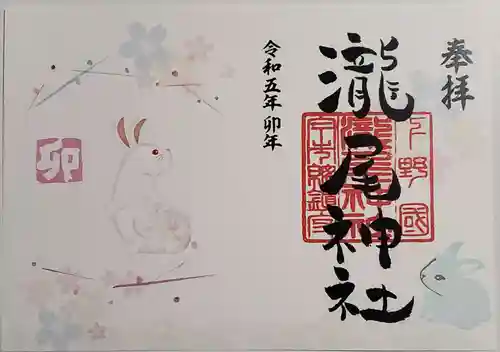 奉拝
瀧尾神社
下野國
瀧尾神社
令和五年 卯年
卯